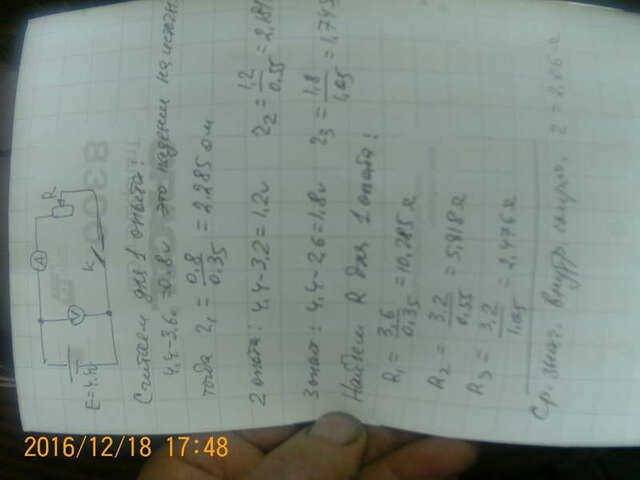 E=4.4v
A
R
V
K
Считаем для 1 опыта:
4,4-3,6=0.8v это падение на
тогда r₁ = 0.8/0.35 = 2,285 ом
2 опыта: 4,4-3.2=1,2v r₂ = 1,2/0.55 = 2,181
3 опыт: 4,4-2,6=1,8v r₃ = 1,8/1,05 = 1,743
Найдем R для 1 опыта:
R₁ = 3,6/0.35 = 10,285 Ω
R₂ = 3,2/0,55 = 5,818 Ω
R₃ = 3,2/1,05 = 2,476 Ω
Ср. знач. внутр. r = 2.06 Ω
2016/12/18 17:48